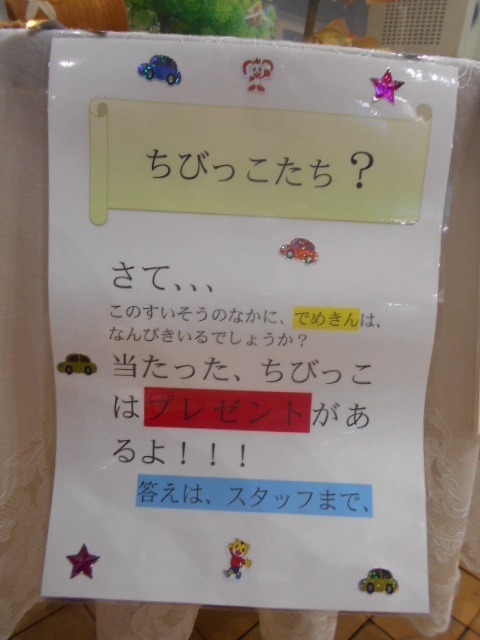 ちびっこたち？
さて、、、
このすいそうのなかに、でめきんは、
なんびきいるでしょうか？
当たった、ちびっこ
はプレゼントがあ
るよ！！！
答えは、スタッフまで、